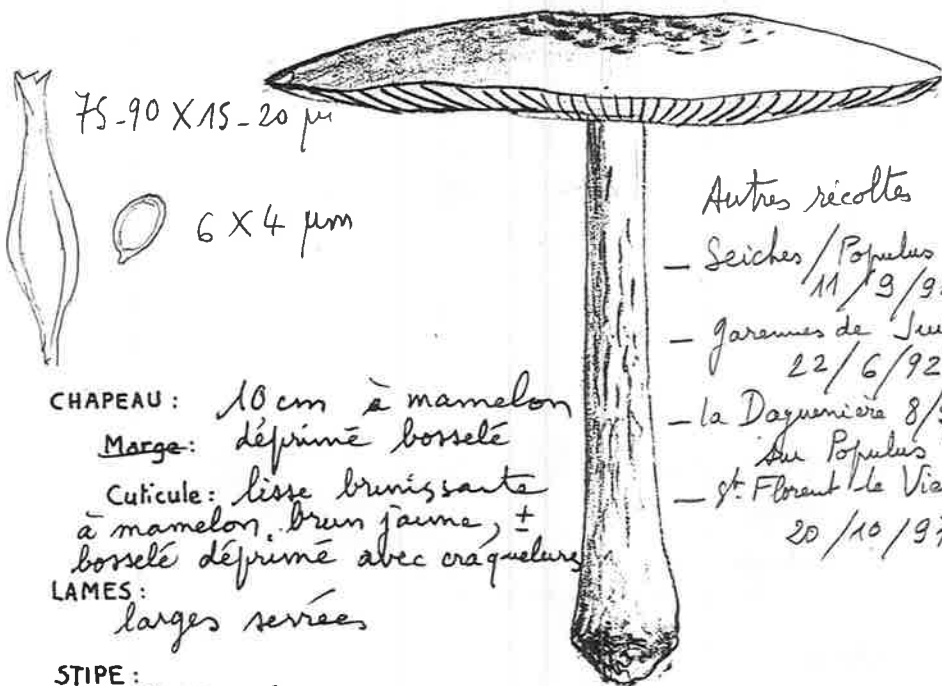 75-90 X 15-20 µm
6 X 4 µm
Autres récoltes
- Seiches / Populus
11/9/9
- garennes de
22/6/92
- la Daguenière 8/
sur Populus
- St Florent le
20/10/9
CHAPEAU : 10 cm à mamelon
Marge : déprimé bosselé
Cuticule : lisse brunissante
à mamelon brun jaune, ±
bosselé déprimé avec craquelures
LAMES :
larges serrées
STIPE :